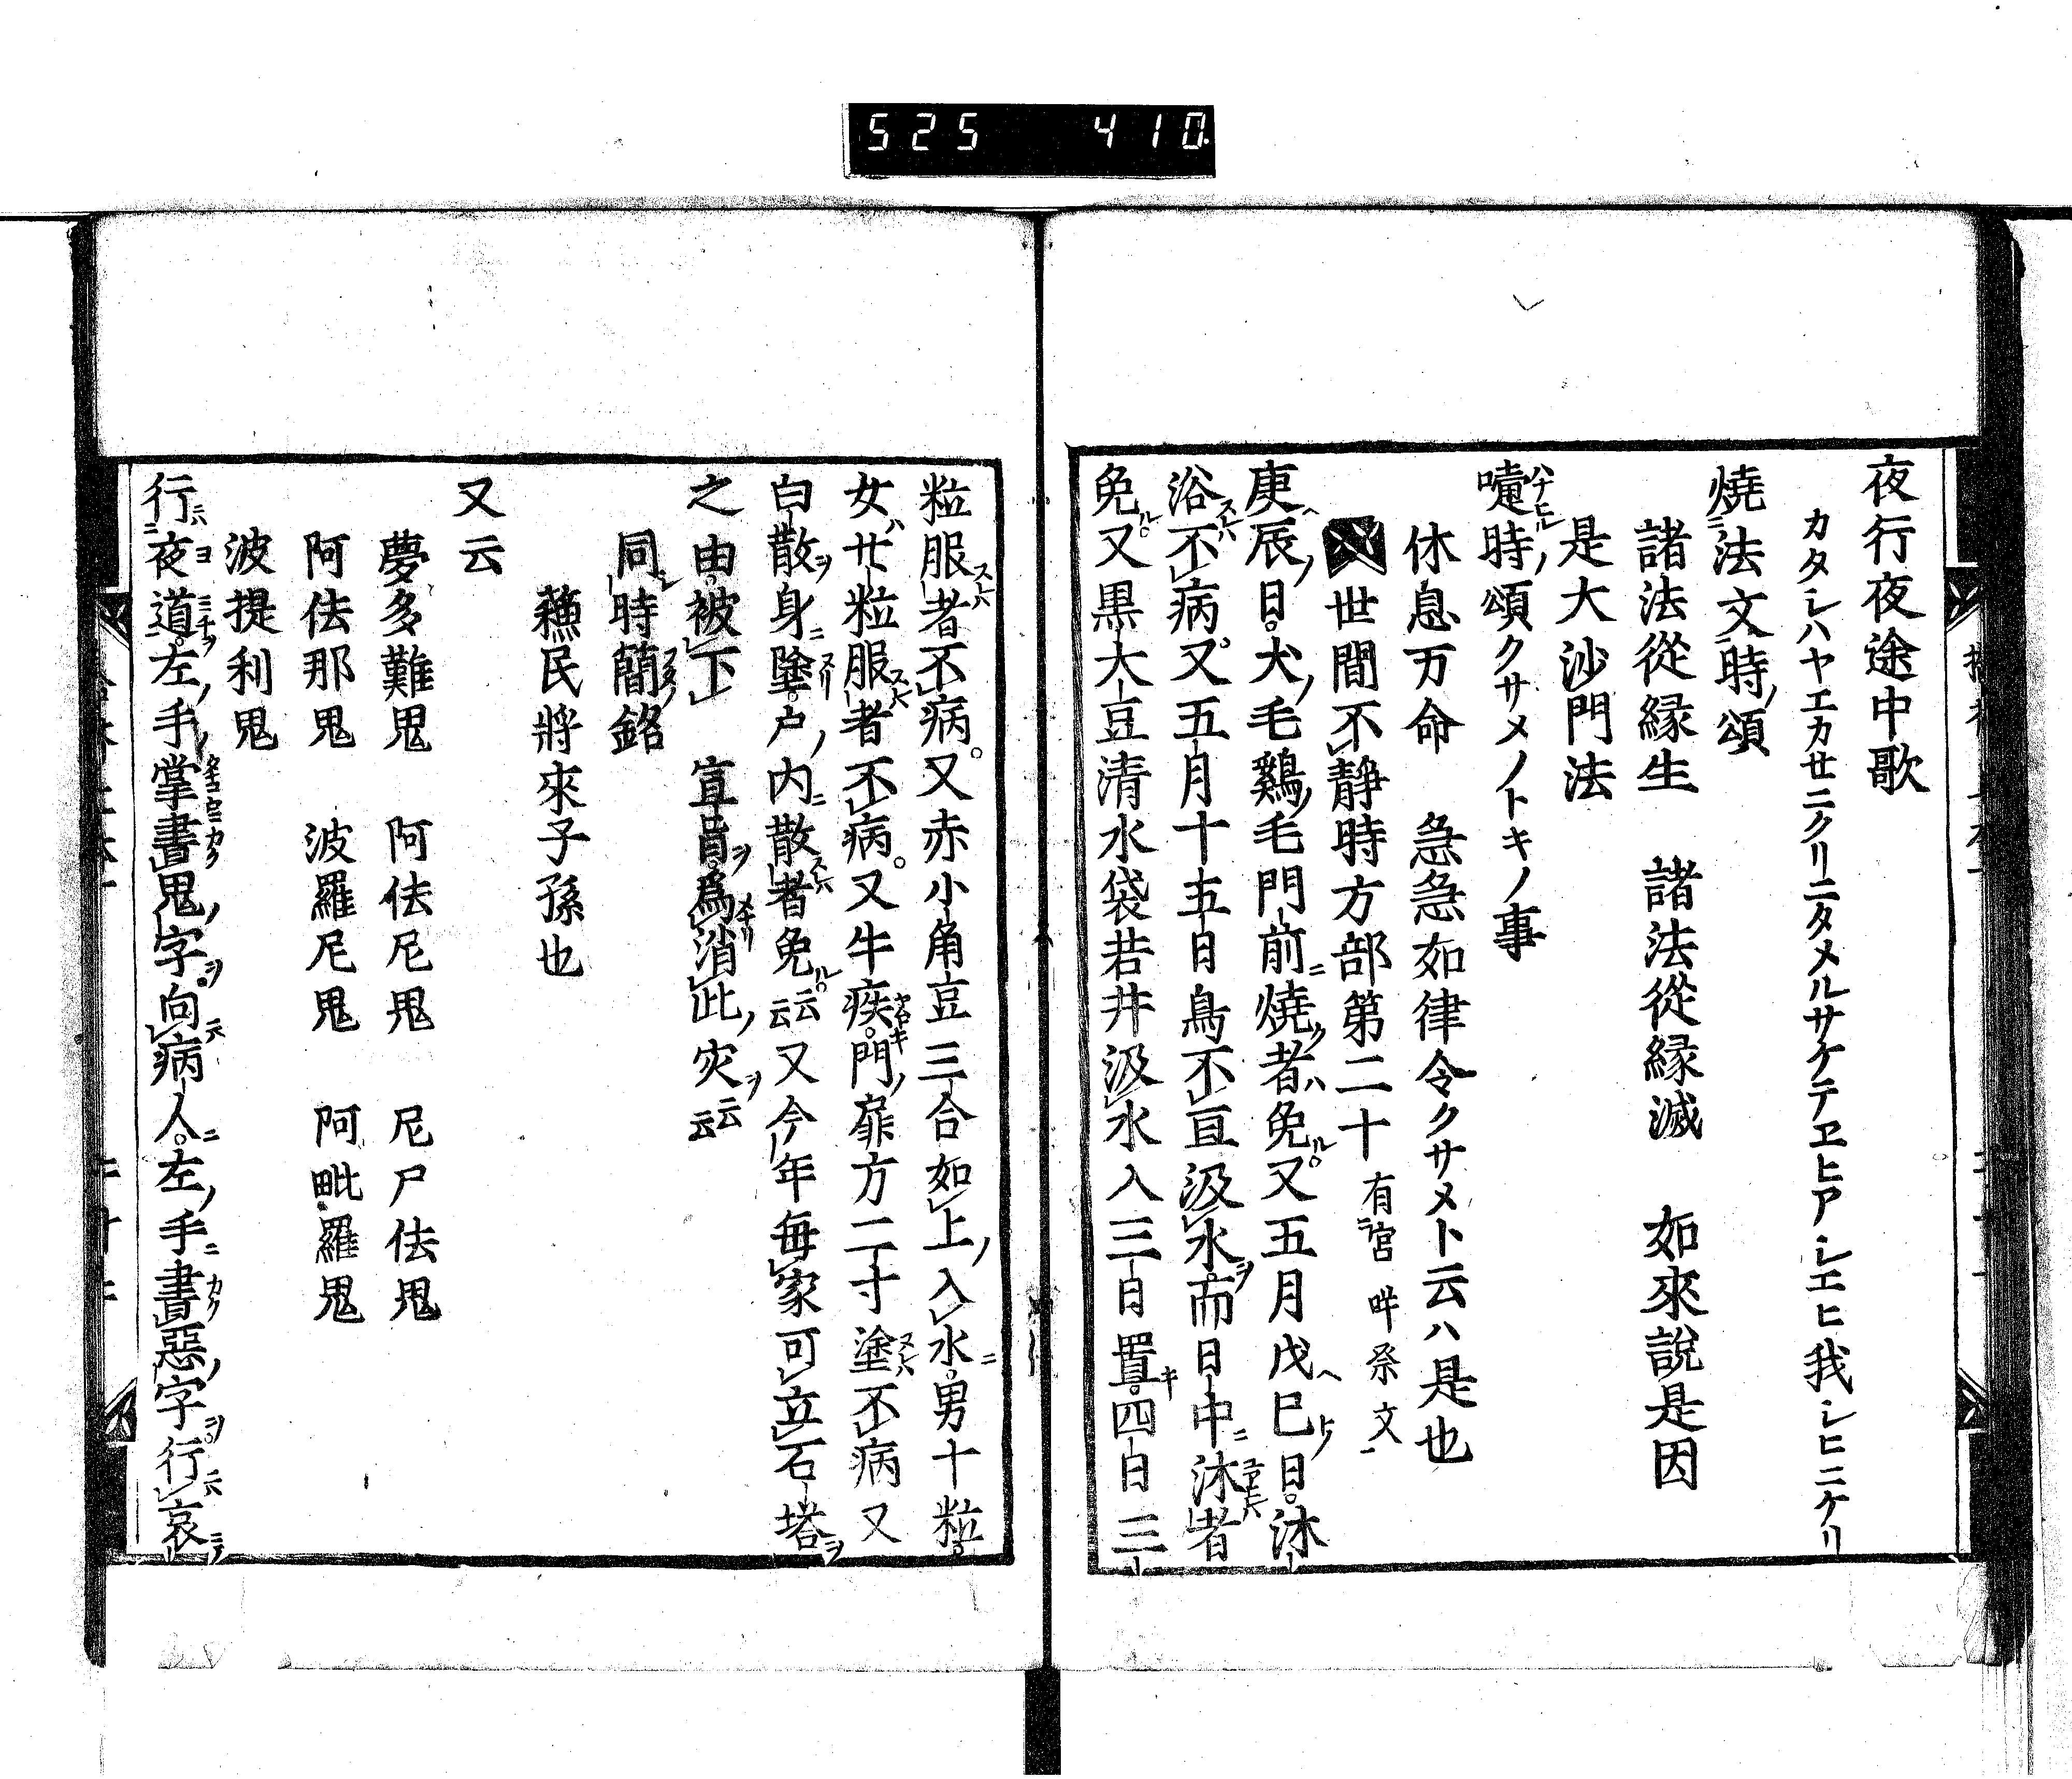 525 410
夜行夜途中歌
カタシハヤエカセニクリニタメルサケテヱヒアシエヒ我シヒニケリ
燒法文時頌
諸法從縁生 諸法從縁滅 如來說是因
是大沙門法
嚏時頌クサメノトキノ事
休息万命 急急如律令クサメト云ハ是也
世間不靜時方部第二十 有宮咩祭文
庚辰日犬毛鷄毛門前燒者免又五月戊巳日沐
浴不病又五月十五日鳥不亘汲水而日中沐者
免又黒大豆清水袋若井汲水入三日置四日三
粒服者不病又赤小角豆三合如上入水男十粒
女廿粒服者不病又牛疾門扉方二寸塗不病又
白散身塗戸内散者免云云又今年毎家可立石塔
之由被下 宣旨爲消此灾云云
同時簡銘
蘓民將來子孫也
又云
夢多難鬼 阿佉尼鬼 尼尸佉鬼
阿佉那鬼 波羅尼鬼 阿毗羅鬼
波提利鬼
行夜道左手掌書鬼字向病人左手書惡字行哀